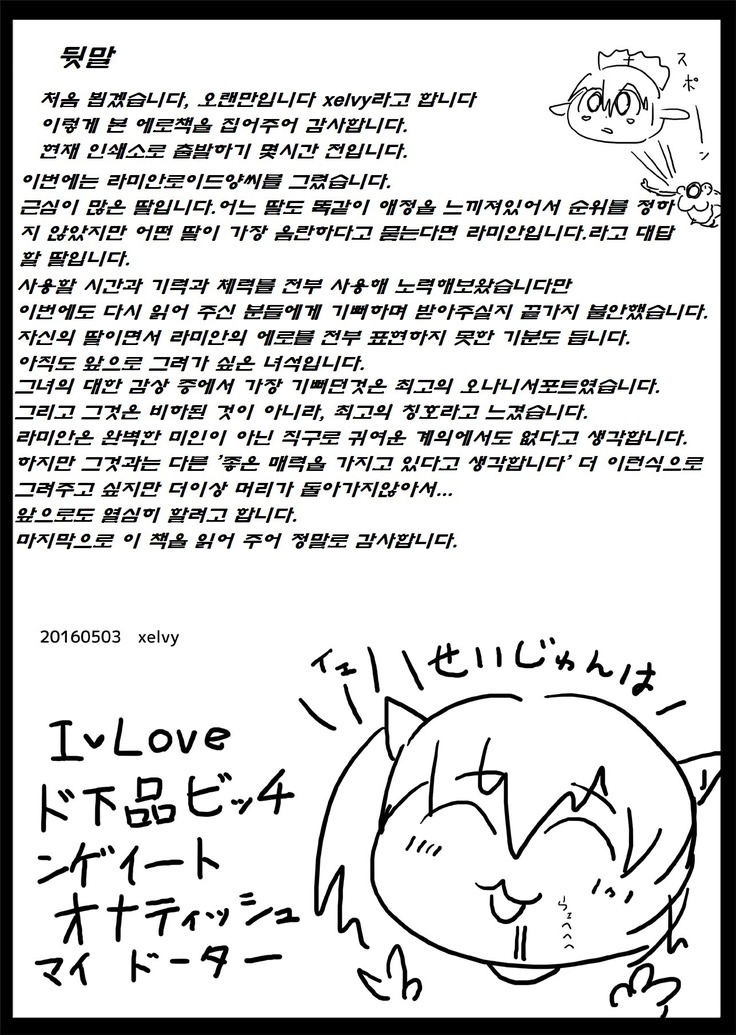 뒷말
スポーン
처음 뵙겠습니다, 오랜만입니다 xelvy라고 합니다
이렇게 본 에로책을 집어주어 감사합니다.
현재 인쇄소로 출발하기 몇시간 전입니다.
이번에는 라미안로이드양씨를 그렸습니다.
근심이 많은 딸입니다.어느 딸도 똑같이 애정을 느끼져있어서 순위를 정하
지 않았지만 어떤 딸이 가장 음란하다고 묻는다면 라미안입니다.라고 대답
할 딸입니다.
사용할 시간과 기력과 체력를 전부 사용해 노력해보왔습니다만
이번에도 다시 읽어 주신 분들에게 기뻐하며 받아주실지 끝가지 불안했습니다.
자신의 딸이면서 라미안의 에로를 전부 표현하지 못한 기분도 듭니다.
아직도 앞으로 그려가 싶은 녀석입니다.
그녀의 대한 감상 중에서 가장 기뻐던것은 최고의 오나니서포트였습니다.
그리고 그것은 비하된 것이 아니라, 최고의 칭호라고 느겼습니다.
라미안은 완벽한 미인이 아닌 직구로 귀여운 계의에서도 없다고 생각합니다.
하지만 그것과는 다른 '좋은 매력을 가지고 있다고 생각합니다' 더 이런식으로
그려주고 싶지만 더이상 머리가 돌아가지않아서...
앞으로도 열심히 할려고 합니다.
마지막으로 이 책을 읽어 주어 정말로 감사합니다.
20160503 xelvy
イェー
せいじゅんはー
I♥Love
ド下品ビッチ
ンゲイート
オナティッシュ
マイ ドーター
らェへへへ